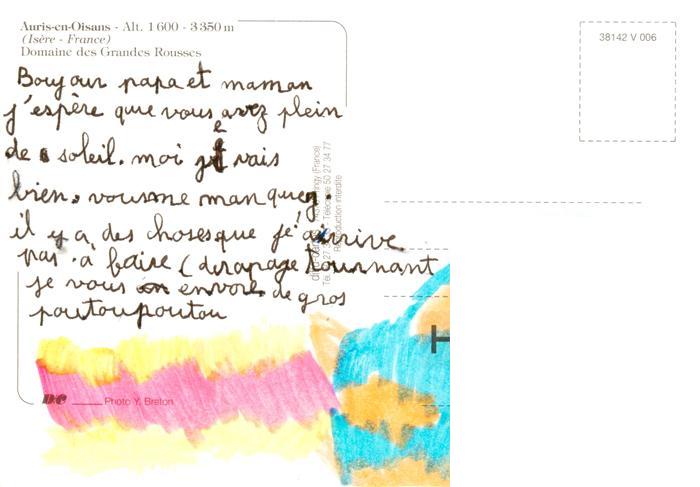 Auris-en-Oisans - Alt. 1 600 - 3 350 m
(Isère - France)
Domaine des Grandes Rousses
38142 V 006
Boujour papa et maman
j'espère que vous avez plein
de soleil. moi je vais
bien. vous me manquez.
il y a des choses que je n'arrive
pas à faire (dérapage tournant
je vous envoie de gros
poutoupoutou
Photo Y. Breton
Reproduction interdite